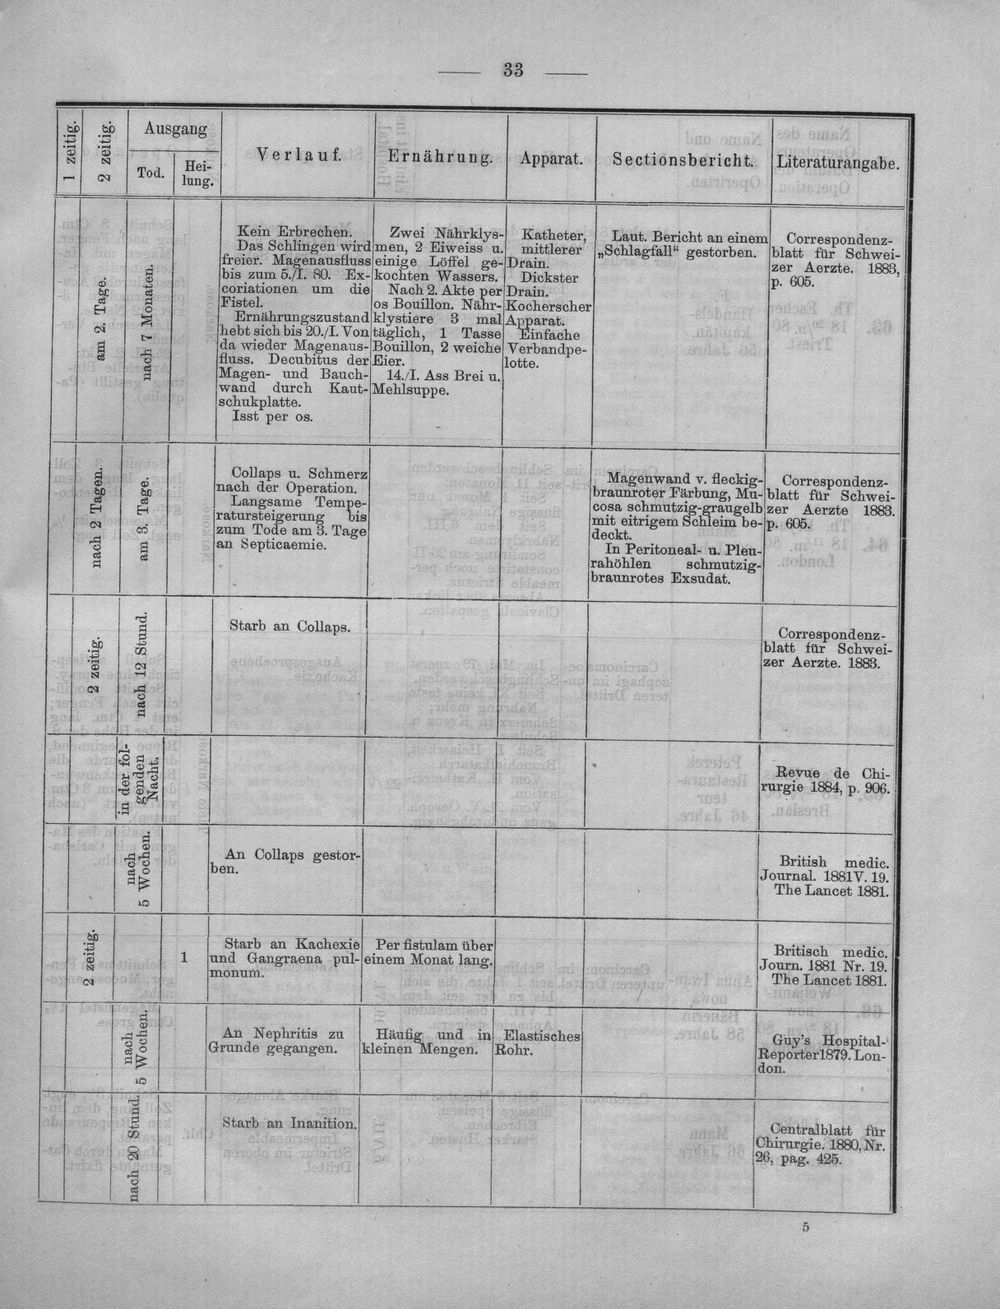 33
1 zeitig.
2 zeitig.
Ausgang
Tod.
Hei-
lung.
Verlauf.
Ernährung.
Apparat.
Sectionsbericht.
Literaturangabe.
am 2. Tage.
nach 7 Monaten.
Kein Erbrechen.
Das Schlingen wird
freier. Magenausfluss
bis zum 5./I. 80. Ex-
coriationen um die
Fistel.
Ernährungszustand
hebt sich bis 20./I. Von
da wieder Magenaus-
fluss. Decubitus der
Magen- und Bauch-
wand durch Kaut-
schukplatte.
Isst per os.
Zwei Nährklys-
men, 2 Eiweiss u.
einige Löffel ge-
kochten Wassers.
Nach 2. Akte per
os Bouillon. Nähr-
klystiere 3 mal
täglich, 1 Tasse
Bouillon, 2 weiche
Eier.
14./I. Ass Brei u.
Mehlsuppe.
Katheter,
mittlerer
Drain.
Dickster
Drain.
Kocherscher
Apparat.
Einfache
Verbandpe-
lotte.
Laut. Bericht an einem
„Schlagfall“ gestorben.
Correspondenz-
blatt für Schwei-
zer Aerzte. 1883,
p. 605.
nach 2 Tagen.
am 3. Tage.
Collaps u. Schmerz
nach der Operation.
Langsame Tempe-
ratursteigerung bis
zum Tode am 3. Tage
an Septicaemie.
Magenwand v. fleckig-
braunroter Färbung, Mu-
cosa schmutzig-graugelb
mit eitrigem Schleim be-
deckt.
In Peritoneal- u. Pleu-
rahöhlen schmutzig-
braunrotes Exsudat.
Correspondenz-
blatt für Schwei-
zer Aerzte 1883.
p. 605.
2 zeitig.
nach 12 Stund.
Starb an Collaps.
Correspondenz-
blatt für Schwei-
zer Aerzte. 1883.
in der fol-
genden
Nacht.
Revue de Chi-
rurgie 1884, p. 906.
nach
5 Wochen.
An Collaps gestor-
ben.
British medic.
Journal. 1881 V. 19.
The Lancet 1881.
2 zeitig.
1
Starb an Kachexie
und Gangraena pul-
monum.
Per fistulam über
einem Monat lang.
Britisch medic.
Journ. 1881 Nr. 19.
The Lancet 1881.
nach
5 Wochen.
An Nephritis zu
Grunde gegangen.
Häufig und in
kleinen Mengen.
Elastisches
Rohr.
Guy's Hospital-
Reporter 1879. Lon-
don.
nach 20 Stund.
Starb an Inanition.
Centralblatt für
Chirurgie. 1880, Nr.
26, pag. 425.
5